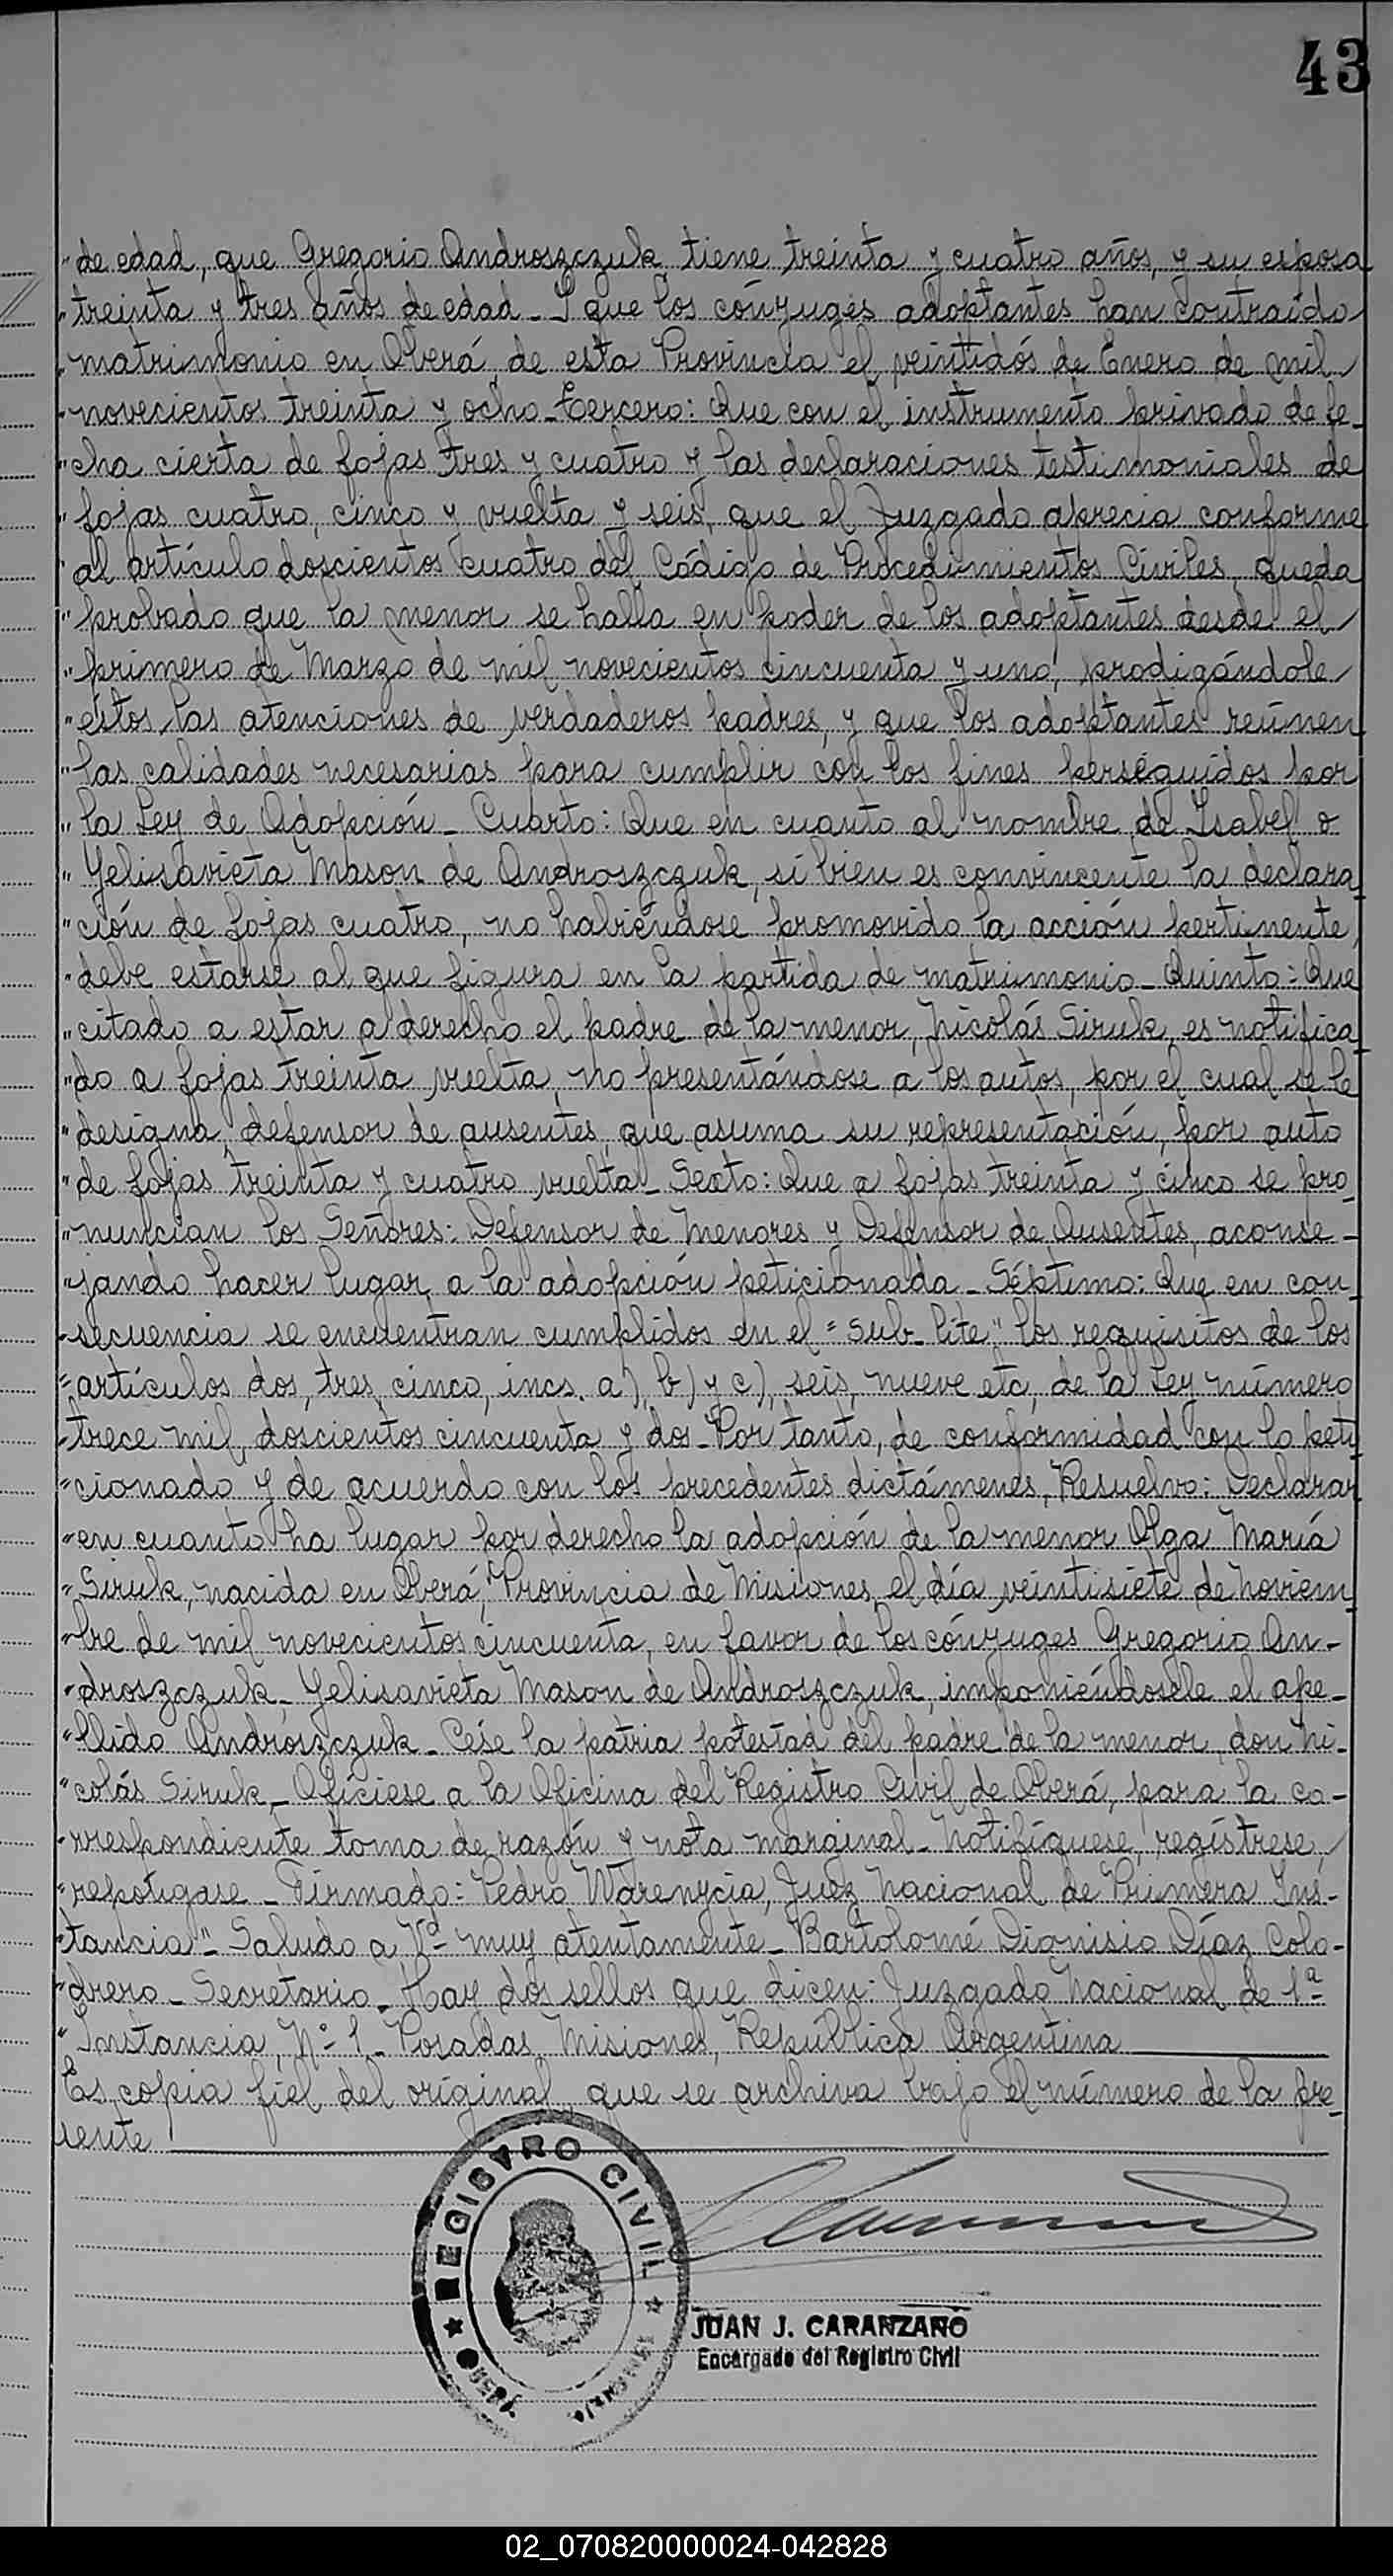 43
"de edad, que Gregorio Androszczuk tiene treinta y cuatro años, y su esposa
"treinta y tres años de edad_ Y que los cónyuges adoptantes han contraído
"matrimonio en Oberá de esta Provincia el veintidós de Enero de mil
"novecientos treinta y ocho_Tercero: Que con el instrumento privado de fe_
"cha cierta de fojas tres y cuatro y las declaraciones testimoniales de
"fojas cuatro, cinco y vuelta y seis, que el Juzgado aprecia conforme
"al artículo doscientos cuatro del Código de Procedimientos Civiles, queda
"probado que la menor se halla en poder de los adoptantes desde el
"primero de Marzo de mil novecientos cincuenta y uno, prodigándole
"éstos las atenciones de verdaderos padres, y que los adoptantes reúnen
"las calidades necesarias para cumplir con los fines perseguidos por
"la Ley de Adopción_ Cuarto: Que en cuanto al nombre de Isabel o
"Yelisavieta Mason de Androszczuk, si bien es convincente la declara_
"ción de fojas cuatro, no habiéndose promovido la acción pertinente,
"debe estarse al que figura en la partida de matrimonio_ Quinto: Que
"citado a estar a derecho el padre de la menor, Nicolás Siruk, es notifica_
"do a fojas treinta vuelta, no presentándose a los autos, por el cual se le
"designa, defensor de ausentes, que asuma su representación, por auto
"de fojas treinta y cuatro vuelta_ Sexto: Que a fojas treinta y cinco se pro_
"nuncian los Señores: Defensor de Menores y Defensor de Ausentes, aconse_
"jando hacer lugar a la adopción peticionada_ Séptimo: Que en con_
"secuencia se encuentran cumplidos en el "sub-lite" los requisitos de los
"artículos dos, tres, cinco, incs. a), b) y c), seis, nueve etc, de la Ley número
"trece mil, doscientos cincuenta y dos_Por tanto, de conformidad con lo peti_
"cionado y de acuerdo con los precedentes dictámenes, Resuelvo: Declarar
"en cuanto ha lugar por derecho la adopción de la menor Olga María
"Siruk, nacida en Oberá, Provincia de Misiones, el día veintisiete de Noviem_
"bre de mil novecientos cincuenta, en favor de los cónyuges Gregorio An_
"droszczuk_ Yelisavieta Mason de Androszczuk, imponiéndosele el ape_
"llido Androszczuk_ Cese la patria potestad del padre de la menor, don Ni_
"colás Siruk_ Ofíciese a la Oficina del Registro Civil de Oberá, para la co_
"rrespondiente toma de razón y nota marginal_ Notifíquese, regístrese,
"repóngase_ Firmado: Pedro Warenycia, Juez Nacional de Primera Ins_
"tancia"_ Saludo a Vº_ muy atentamente_ Bartolomé Dionisio Díaz Colo_
"drero_ Secretario_ Hay dos sellos que dicen: Juzgado Nacional de 1ª
"Instancia, Nº 1_ Posadas, Misiones, República Argentina
Es copia fiel del original, que se archiva bajo el número de la pre_
sente
REGISTRO CIVIL
OBERÁ
JUAN J. CARANZANO
Encargado del Registro Civil
02_070820000024-042828